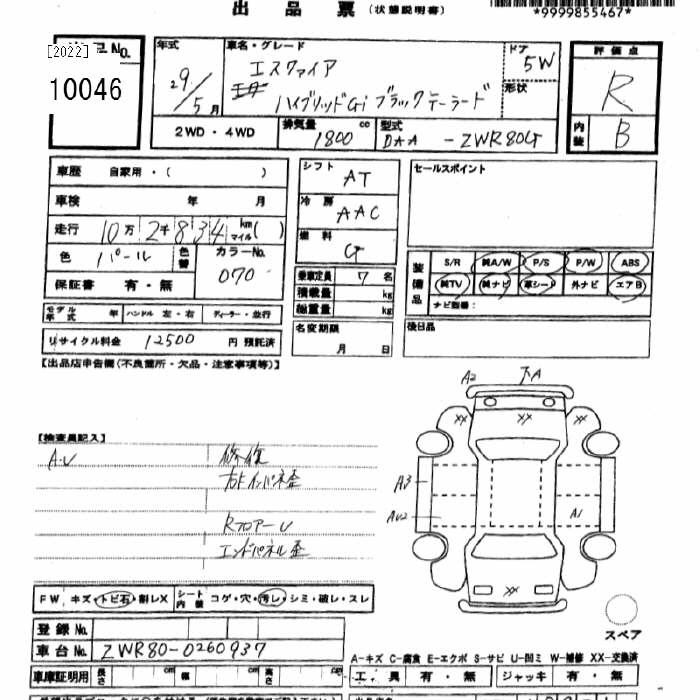 出品票 (状態説明書)
*9999855467*
[2022] No.
10046
年式 29/5月
車名・グレード エスクァイア
ハイブリッドGi ブラックテーラード
ドア 5W
形状
2WD・4WD
排気量 1800 cc
型式 DAA-ZWR80G
評価点 R
内装 B
車歴 自家用・( )
車検 年 月
走行 10万2千834 km マイル( )
色 パール
色替
カラーNo. 070
保証書 有・無
モデル年式 年 ハンドル 左・右 ディーラー・並行
リサイクル料金 12500 円 預託済
シフト AT
冷房 AAC
燃料 G
乗車定員 7名
積載量 kg
総重量 kg
名変期限
月 日
セールスポイント
装備品
S/R 純A/W P/S P/W ABS
純TV 純ナビ 革シート 外ナビ エアB
ナビ型番:
後日品
【出品店申告欄(不良箇所・欠品・注意事項等)】
【検査員記入】
A.U 修復
Rフロアー U
エンドパネル歪
A2 下A
XX XX XX
A3
AU2 A1
XX
スペア
FW キズ・トビ石・割レX シート内装 コゲ・穴・汚レ・シミ・破レ・スレ
登録No.
車台No. ZWR80-0260937
車庫証明用 長さ cm 幅 cm 高さ cm
A-キズ C-腐食 E-エクボ S-サビ U-凹ミ W-補修 XX-交換済
工具 有・無 ジャッキ 有・無